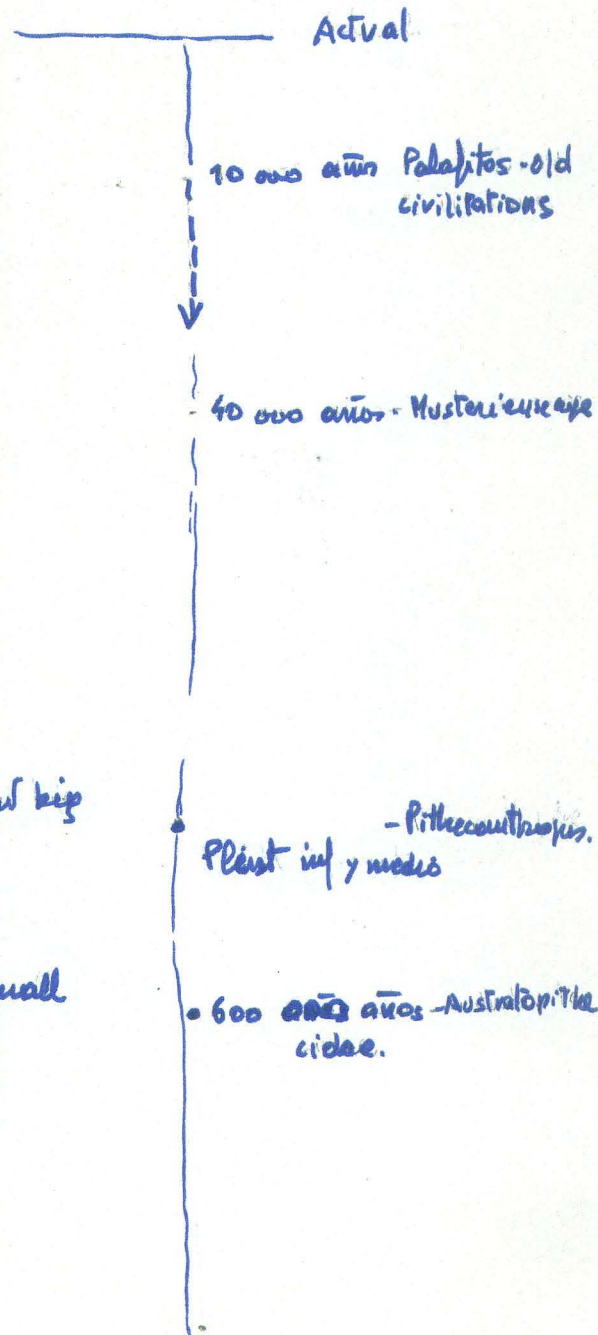 Actual
10 000 años Palafitos - old
civilitations
40 000 años - Musteriense age
big
- Pithecanthropus.
Pleist inf y medio
600 años - Australopithe
cidae.